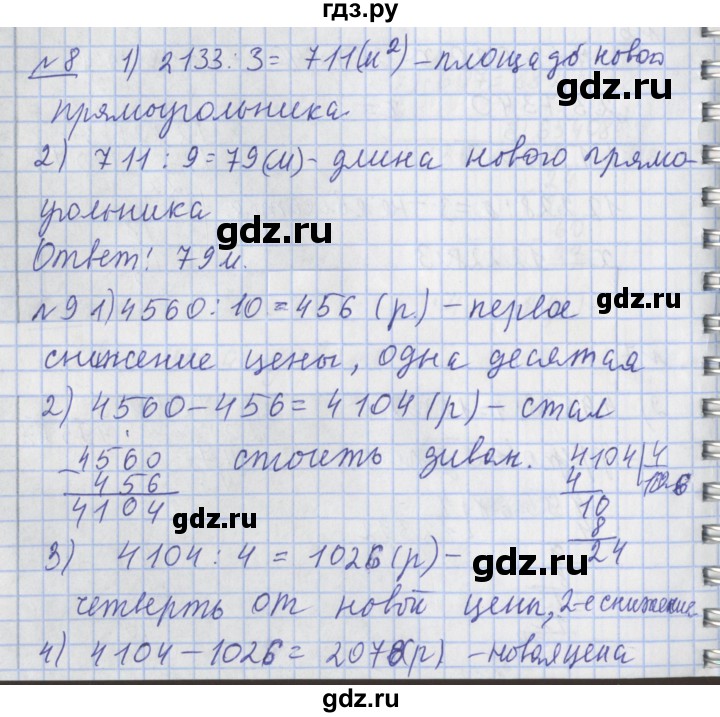 гдз.ру
№8 1) 2133:3= 711(м²) – площадь нового
прямоугольника
2) 711 : 9 = 79 (м) - длина нового прямо-
угольника
gdz.ru
gdz.ru
Ответ: 79 м.
№9 1) 4560 : 10 = 456 (р.) – первое
gdz.ru
снижение цены, одна десятая
2) 4560 – 456 = 4104 (р) – стал
стоить диван.
4560
456
4104
4104 4
4 1026
10
8
24
gdz.ru
gdz.ru
3) 4104 : 4 = 1026 (р) –
четверть от новой цены, 2-е снижение
gdz.ru
4) 4104 – 1026 = 2078 (р) – новая цена
gdz.ru
gdz.ru